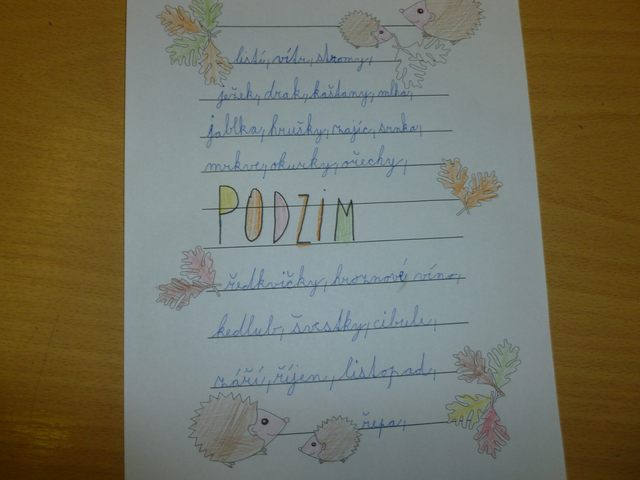 listí, vítr, stromy,
ježek, drak, kaštany, mlha,
jablka, hrušky, zajíc, srnka,
mrkve, okurky, ořechy,
PODZIM
ředkvičky, hroznové víno,
kedlub, švestky, cibule,
září, říjen, listopad,
řepa,